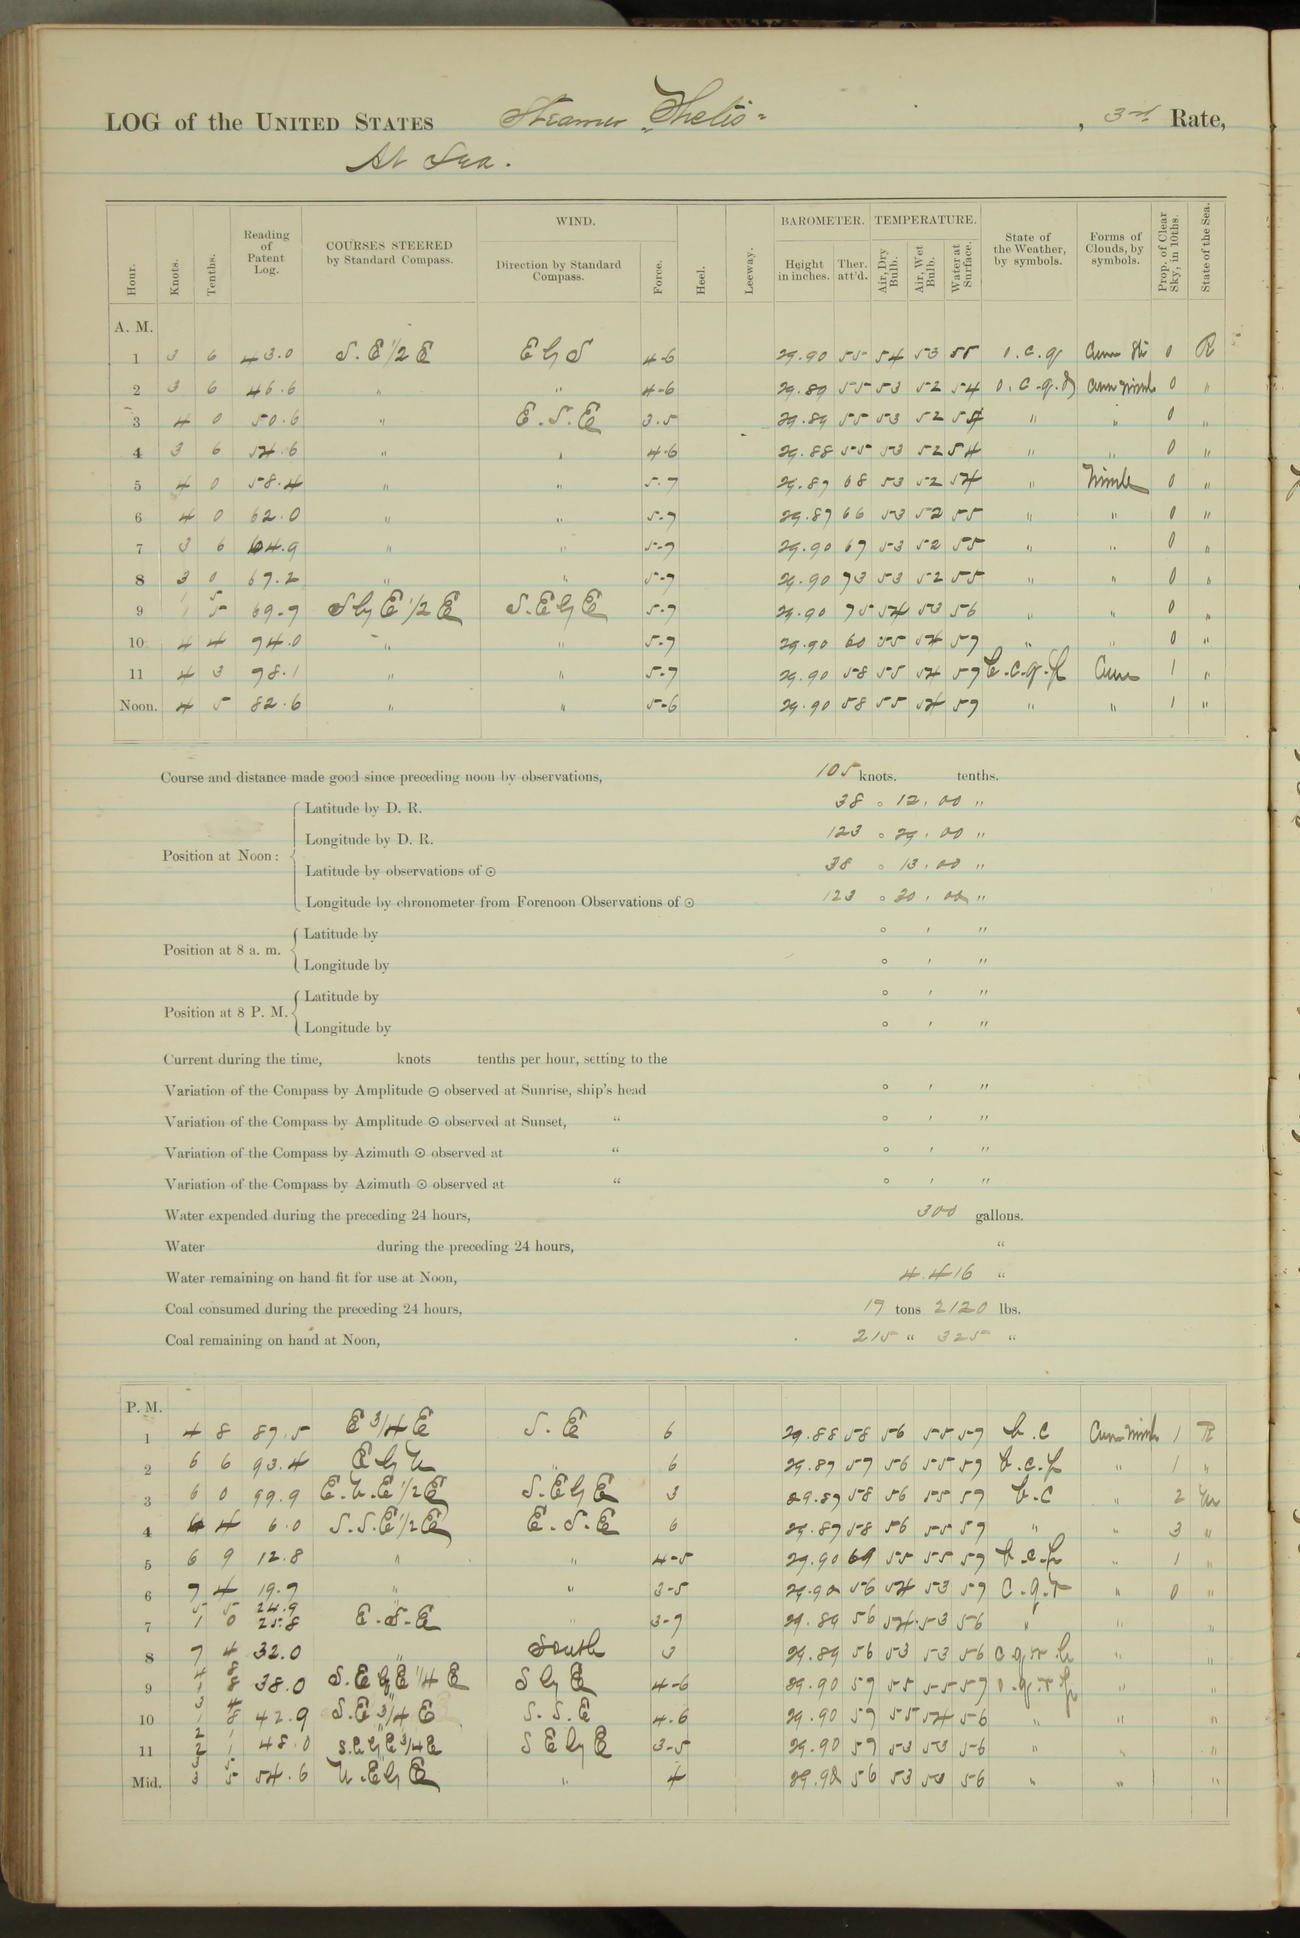 LOG of the UNITED STATES Steamer "Thetis" , 3rd Rate,
At Sea.
Hour. Knots. Tenths. Reading of Patent Log. COURSES STEERED by Standard Compass. WIND. Direction by Standard Compass. Force. Heel. Leeway. BAROMETER. Height in inches. Ther. att'd. TEMPERATURE. Air, Dry Bulb. Air, Wet Bulb. Water at Surface. State of the Weather, by symbols. Forms of Clouds, by symbols. Prop. of Clear Sky, in 10ths. State of the Sea.
A. M.
1 3 6 43.0 S.E 1/2 E E by S 4-6 29.90 55 54 53 55 o.c.q. Cum Str 0 R
2 3 6 46.6 " " 4-6 29.89 55 53 52 54 o.c.q.d Cum Nimb 0 "
3 4 0 50.6 " E.S.E 3.5 29.89 55 53 52 54 " " 0 "
4 3 6 54.6 " " 4-6 29.88 55 53 52 54 " " 0 "
5 4 0 58.4 " " 5-7 29.87 68 53 52 54 " Nimb 0 "
6 4 0 62.0 " " 5-7 29.87 66 53 52 55 " " 0 "
7 3 6 64.9 " " 5-7 29.90 67 53 52 55 " " 0 "
8 3 0 67.2 " " 5-7 29.90 73 53 52 55 " " 0 "
9 1 5 5 69.7 S by E 1/2 E S.E by E 5-7 29.90 75 54 53 56 " " 0 "
10 4 4 74.0 " " 5-7 29.90 60 55 54 57 " " 0 "
11 4 3 78.1 " " 5-7 29.90 58 55 54 57 b.c.q.p Cum 1 "
Noon. 4 5 82.6 " " 5-6 29.90 58 55 54 57 " " 1 "
Course and distance made good since preceding noon by observations, 105 knots. tenths.
Position at Noon:
Latitude by D. R. 38 ° 12 ' 00 "
Longitude by D. R. 123 ° 29 ' 00 "
Latitude by observations of ☉ 38 ° 13 ' 00 "
Longitude by chronometer from Forenoon Observations of ☉ 123 ° 20 ' 00 "
Position at 8 a. m.
Latitude by ° ' "
Longitude by ° ' "
Position at 8 P. M.
Latitude by ° ' "
Longitude by ° ' "
Current during the time, knots tenths per hour, setting to the
Variation of the Compass by Amplitude ☉ observed at Sunrise, ship's head ° ' "
Variation of the Compass by Amplitude ☉ observed at Sunset, " ° ' "
Variation of the Compass by Azimuth ☉ observed at " ° ' "
Variation of the Compass by Azimuth ☉ observed at " ° ' "
Water expended during the preceding 24 hours, 300 gallons.
Water during the preceding 24 hours, "
Water remaining on hand fit for use at Noon, 4.416 "
Coal consumed during the preceding 24 hours, 17 tons 2120 lbs.
Coal remaining on hand at Noon, 215 " 325 "
P. M.
1 4 8 87.5 E 3/4 E S.E 6 29.88 58 56 55 57 b.c Cum Nimb 1 R
2 6 6 93.4 E by N " 6 29.87 57 56 55 57 b.c.p " 1 "
3 6 0 99.9 E.N.E 1/2 E S.E by E 3 29.87 58 56 55 57 b.c " 2 M
4 6 4 6.0 S.S.E 1/2 E E.S.E 6 29.87 58 56 55 57 " " 3 "
5 6 9 12.8 " " 4-5 29.90 69 55 55 57 b.c.p " 1 "
6 7 4 19.7 " " 3-5 29.90 56 54 53 57 c.q.r " 0 "
5 5 24.9
7 1 0 25.8 E.S.E " 3-7 29.89 56 54 53 56 " " "
8 7 4 32.0 " South 3 29.89 56 53 53 56 c q r h " "
4 8
9 1 8 38.0 S.E by E 1/4 E S by E 4-6 29.90 57 55 55 57 o.q.r.p " "
3 4
10 1 8 42.9 S.E 3/4 E S.S.E 4.6 29.90 57 55 54 56 " " "
2 1
11 2 1 48.0 S.E by E 3/4 E S E by E 3-5 29.90 57 53 53 56 " " "
3 5
Mid. 3 5 54.6 N.E by E " 4 29.92 56 53 53 56 " " "